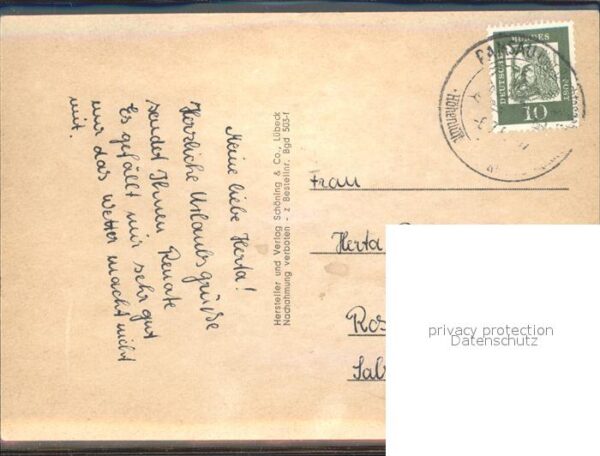 Meine liebe Herta!
Herzliche Urlaubsgrüße
sendet Ihnen Renate
Es gefällt mir sehr gut
nur das Wetter macht nicht
mit.
Hersteller und Verlag Schöning & Co., Lübeck
Nachahmung verboten - z Bestellnr. Bgd 503-1
DEUTSCHE BUNDESPOST
10
Frau
Herta
Ros
Salz
privacy protection
Datenschutz